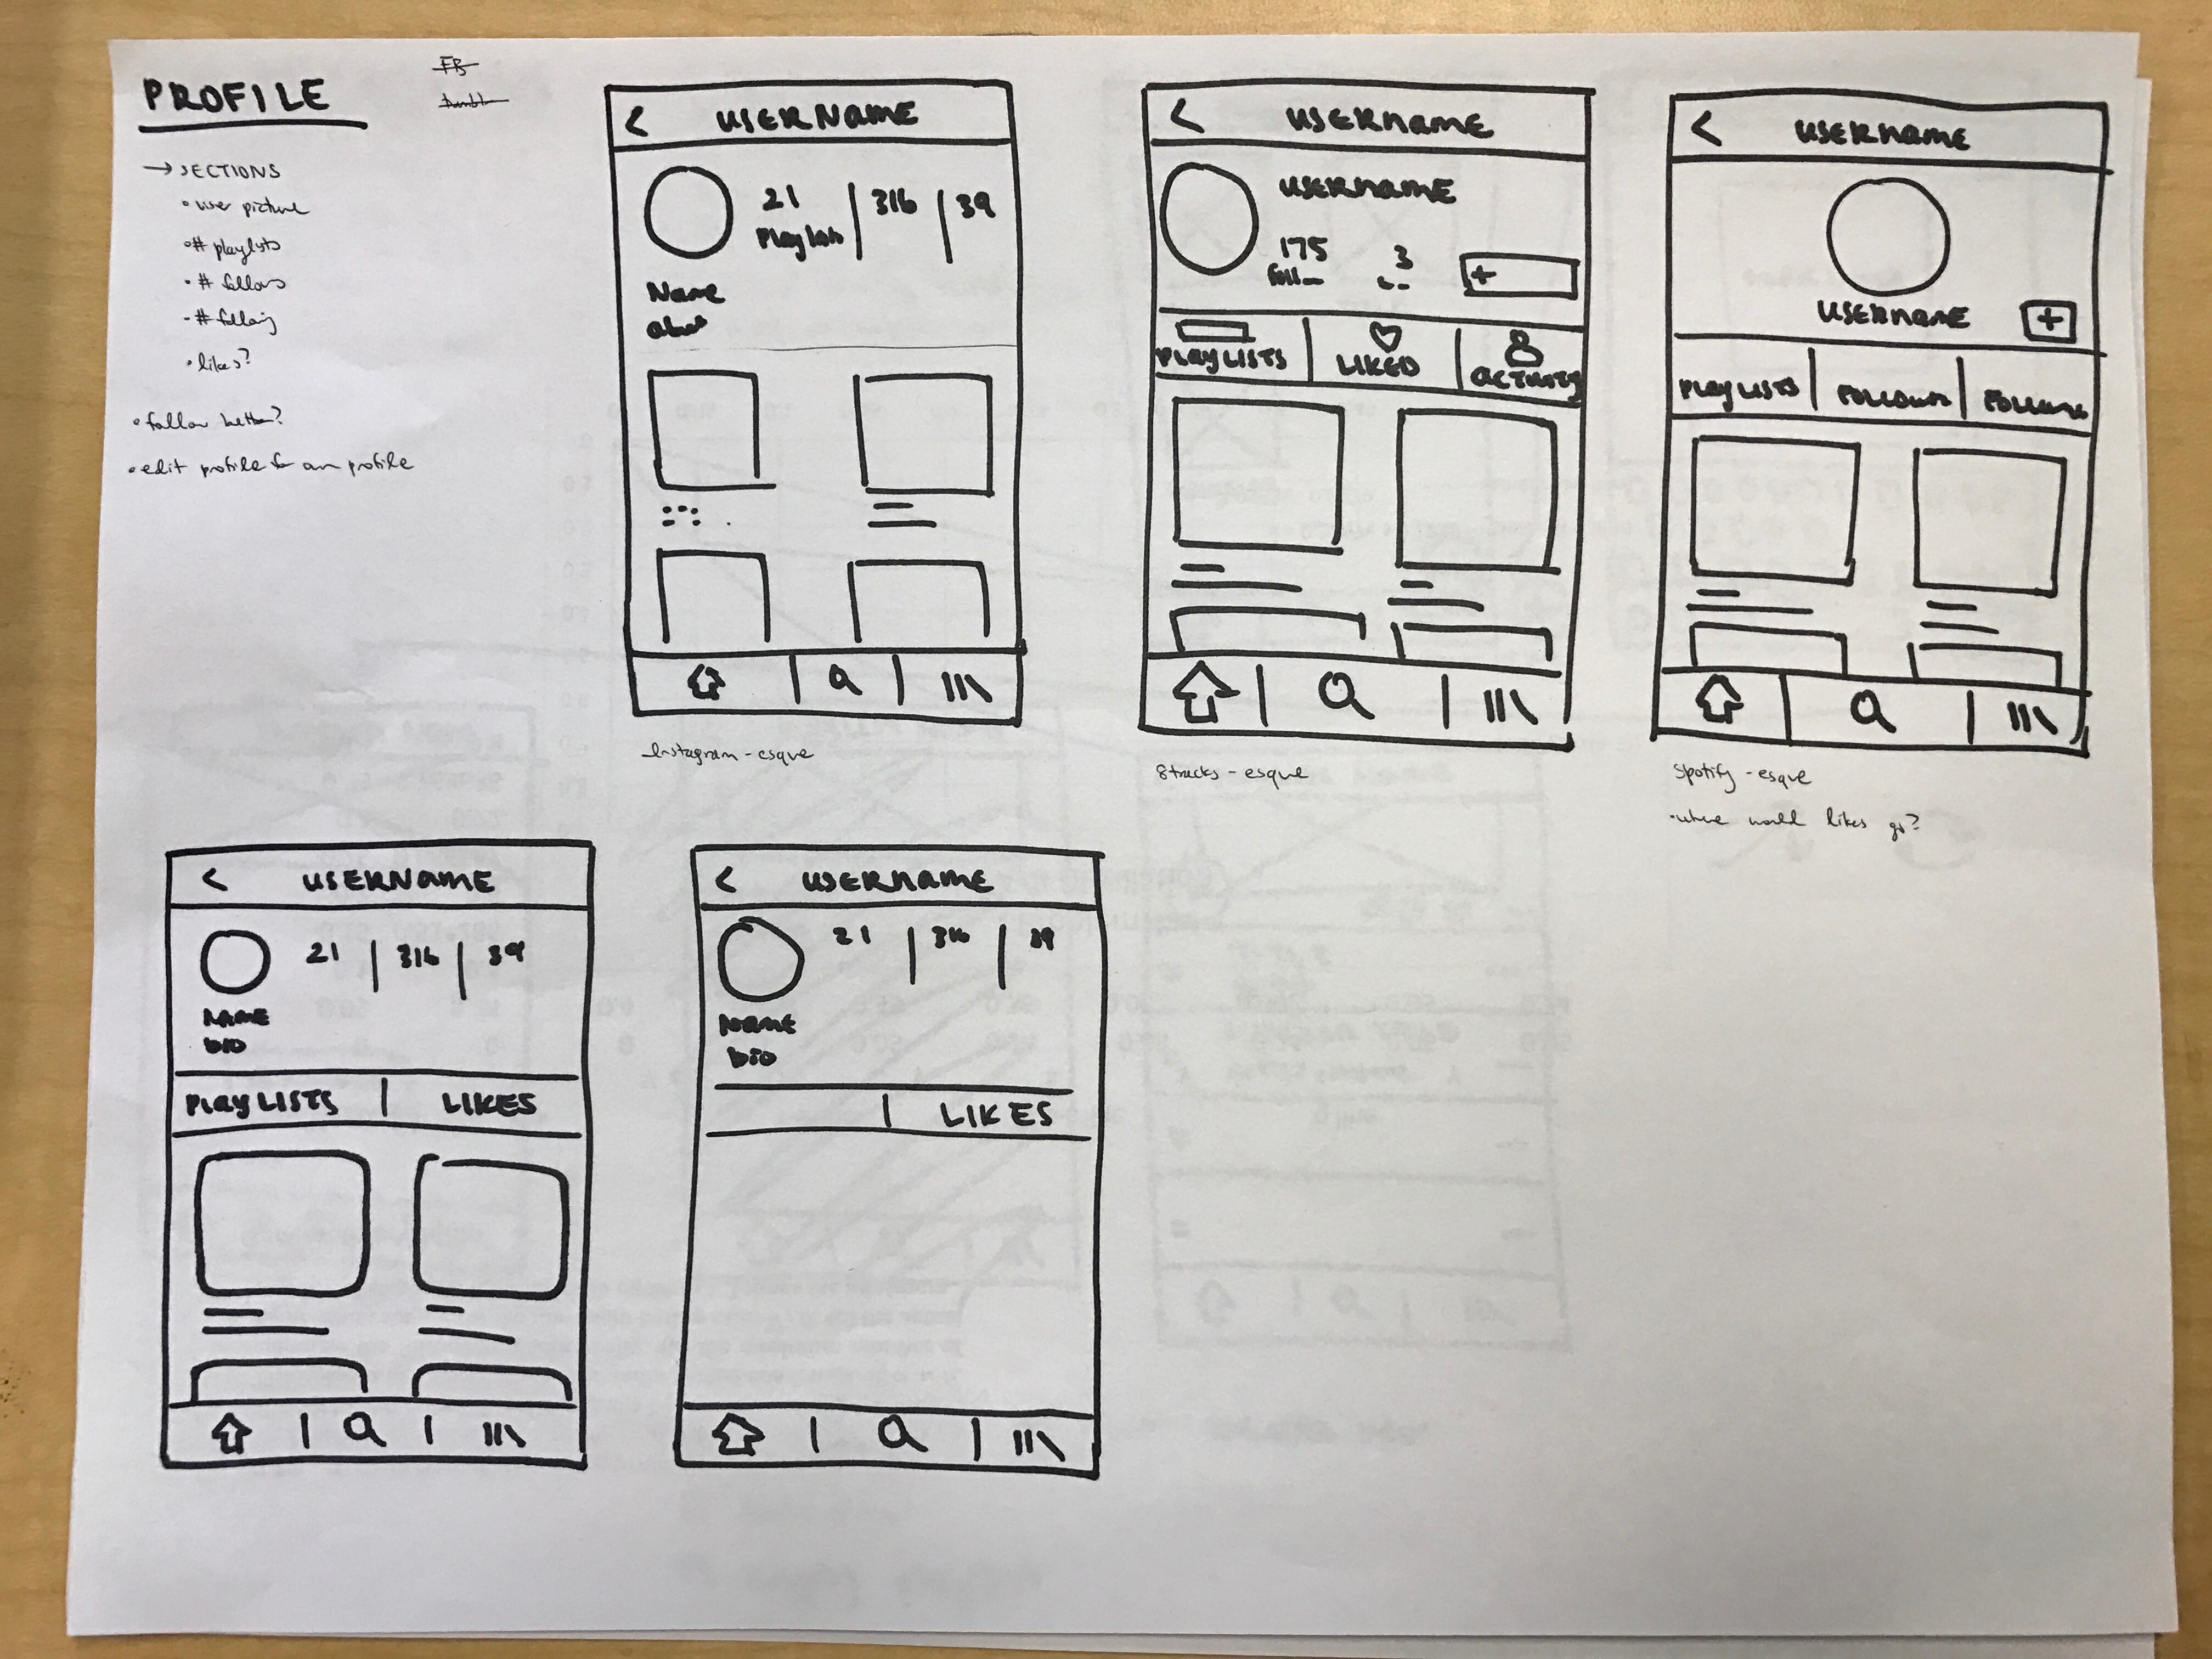 PROFILE
FB
tumblr
→ SECTIONS
• user picture
• # playlists
• # follows
- # following
• likes?
• follow button?
• edit profile for own profile
< USERNAME
21 | 316 | 39
Playlists
Name
about
Instagram-esque
< USERNAME
USERNAME
175 3
foll
+
PLAYLISTS | LIKED | ACTIVITY
8tracks-esque
< USERNAME
USERNAME +
PLAYLISTS | FOLLOWERS | FOLLOWING
Spotify-esque
•where would likes go?
< USERNAME
21 | 316 | 39
NAME
bio
PLAYLISTS | LIKES
< USERNAME
21 | 316 | 39
NAME
bio
| LIKES